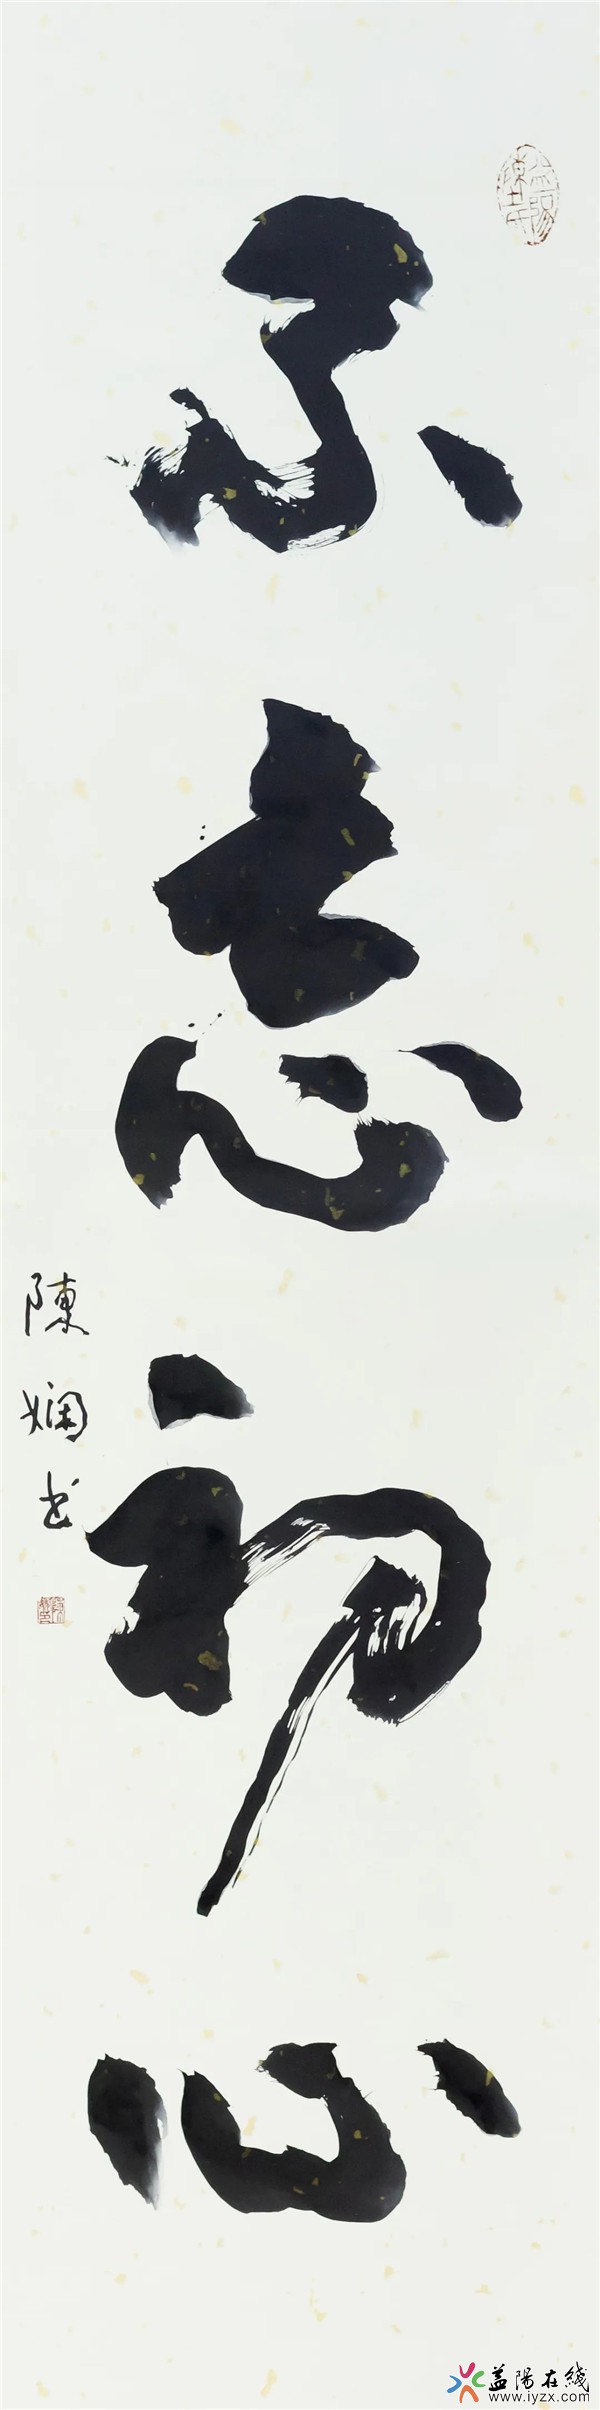 不忘初心
陳嫻书
益陽在线
www.iyzx.com